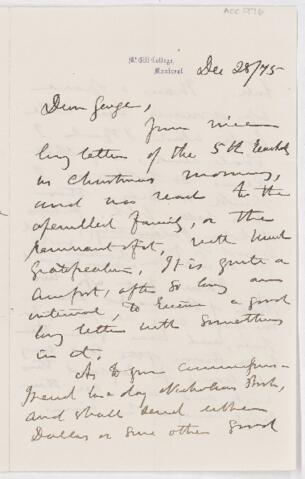 ACC 1776
McGill College,
Montreal
Dec 28/75
Dear George,
Your nice
long letter of the 5th reached
us Christmas morning,
and was read to the
assembled family, or the
remnant of it, with much
gratification. It is quite a
comfort, after so long an
interval, to receive a good
long letter with something
in it.
As to your
I send to day Nicholson's
and shall send either
Dallas or some other good